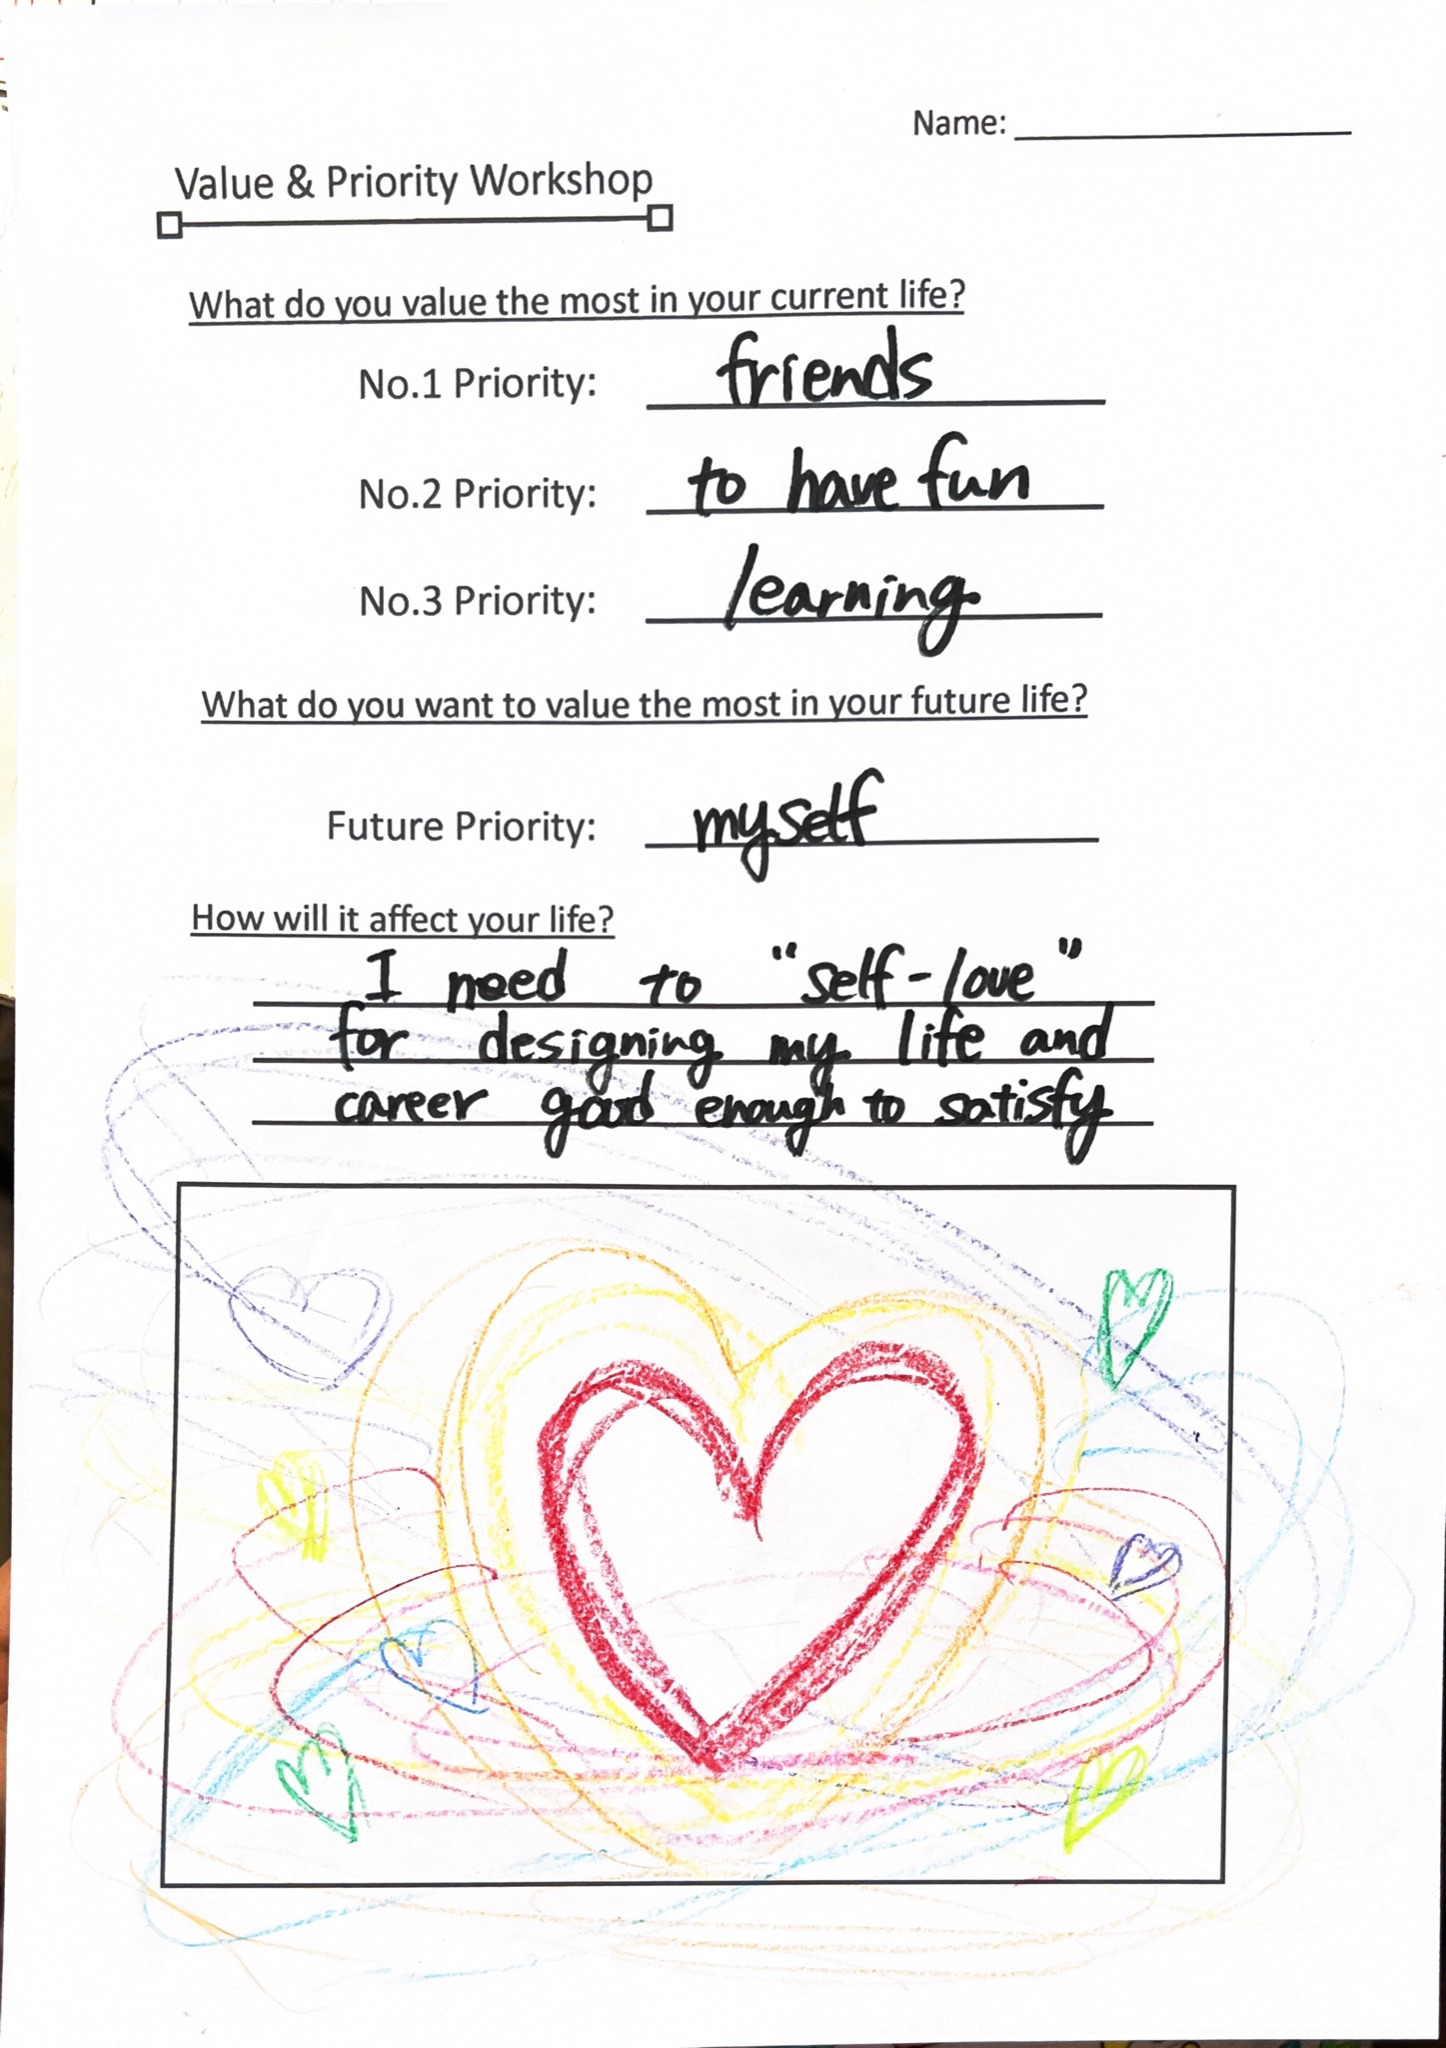 Name:
Value & Priority Workshop
What do you value the most in your current life?
No.1 Priority: friends
No.2 Priority: to have fun
No.3 Priority: learning
What do you want to value the most in your future life?
Future Priority: myself
How will it affect your life?
I need to "self-love"
for designing my life and
career good enough to satisfy